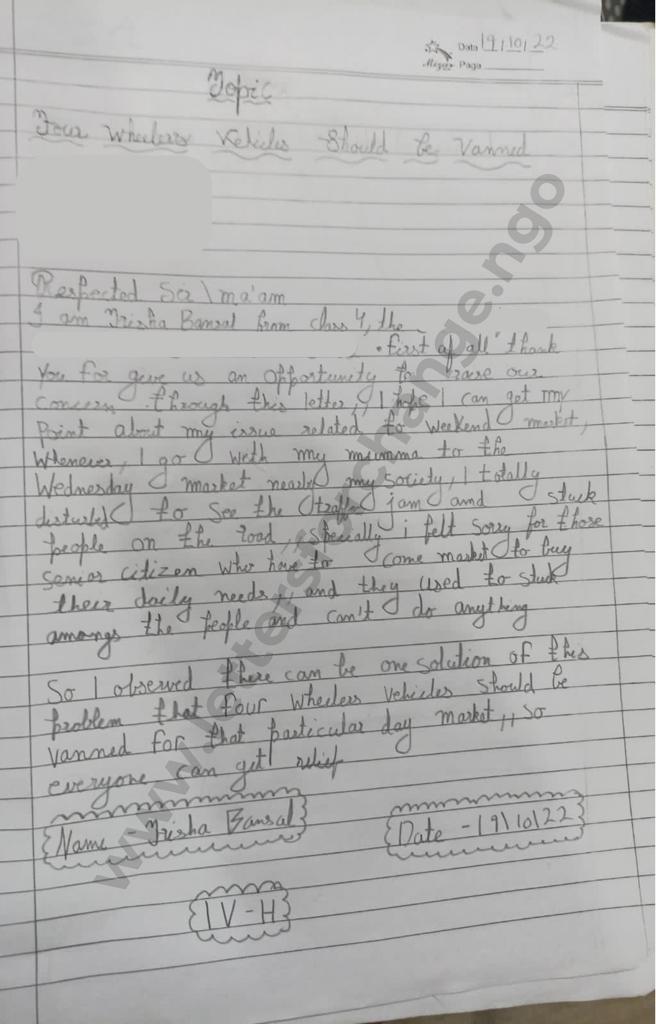 Date 19/10/22
Magic Page
Topic
Four Wheelers Vehicles Should be Vanned
Respected Sir \ ma'am
I am Trisha Bansal from class 4, the
. first of all thank
you for give us an opportunity to raise our
concern through this letter, I hope I can get my
point about my issue related to weekend market,
Whenever, I go with my mumma to the
Wednesday market nearby my society, I totally
disturbed to see the traffic jam and stuck
people on the road, specially i felt sorry for those
senior citizen who have to come market to buy
their daily needs, and they used to stuck
amongs the people and can't do anything
So I observed there can be one solution of this
problem that four wheelers vehicles should be
vanned for that particular day market,, so
everyone can get relief
Name Trisha Bansal
Date - 19\10\22
IV-H
www.lettersforchange.ngo